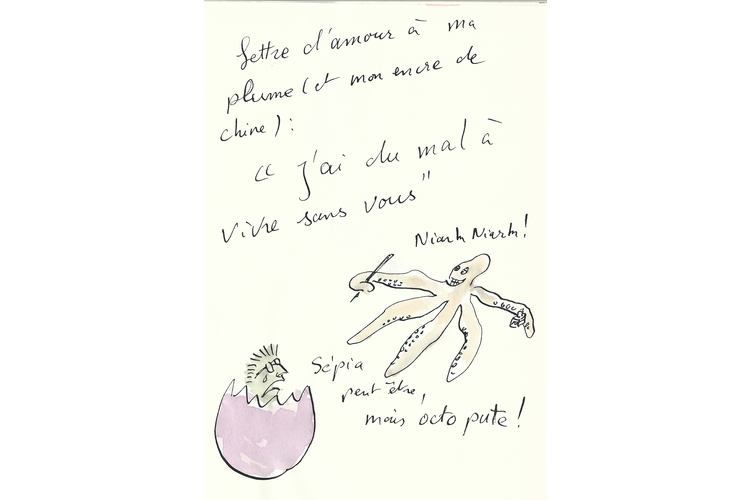 Lettre d'amour à ma
plume (et mon encre de
chine) :
" j'ai du mal à
vivre sans vous "
Niark Niark !
Sépia
peut être,
mais octo pute !